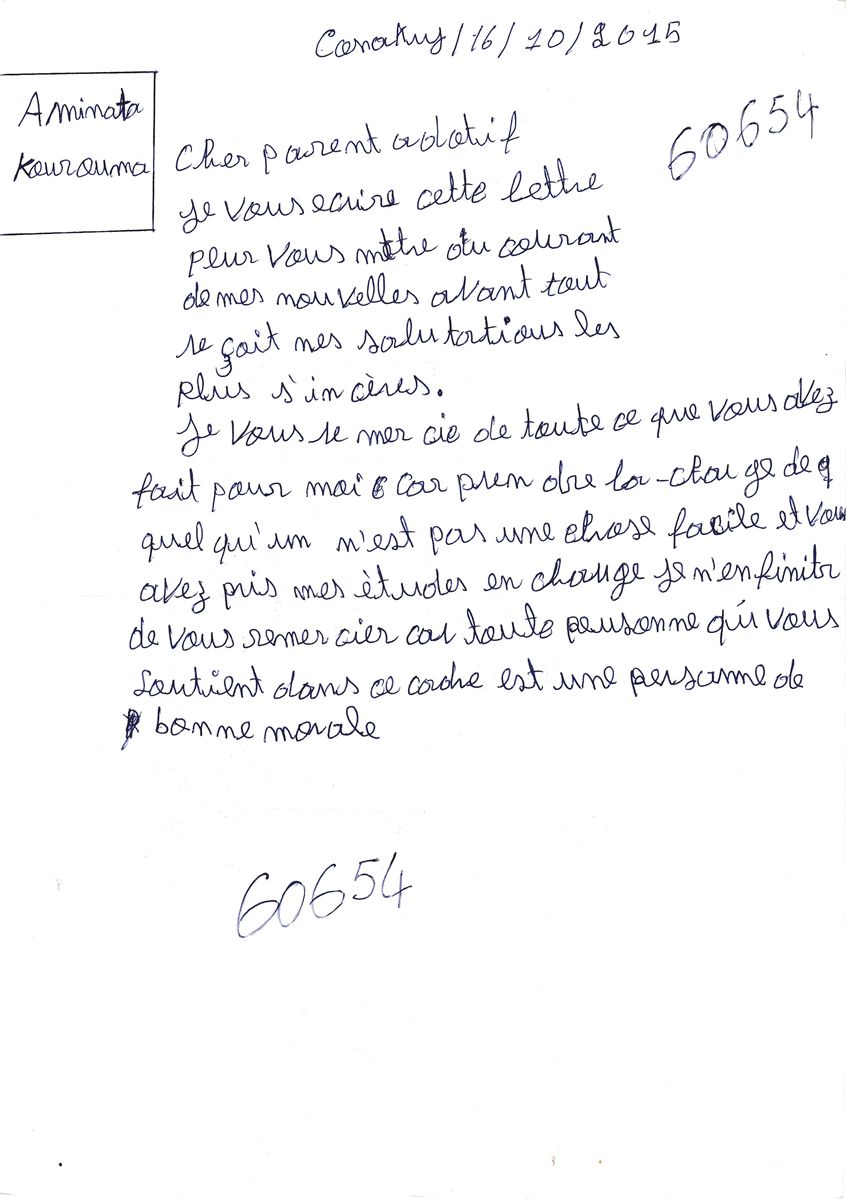 Conakry/16/10/2015
Aminata
Kourouma
60654
Cher parent adotif
je vous ecrire cette lettre
pour vous mttre du courant
de mes nouvelles avant tout
re çoit mes salutations les
plus s'incères.
Je vous re mer cie de toute ce que vous avez
fait pour moi car pren dre la-charge de q
quel qu'un n'est pas une chose facile et vous
avez pris mes ètudes en charge je n'enfinitr
de vous remer cier car toute personne qui vous
soutient dans ce cadre est une personne de
bonne morale
60654